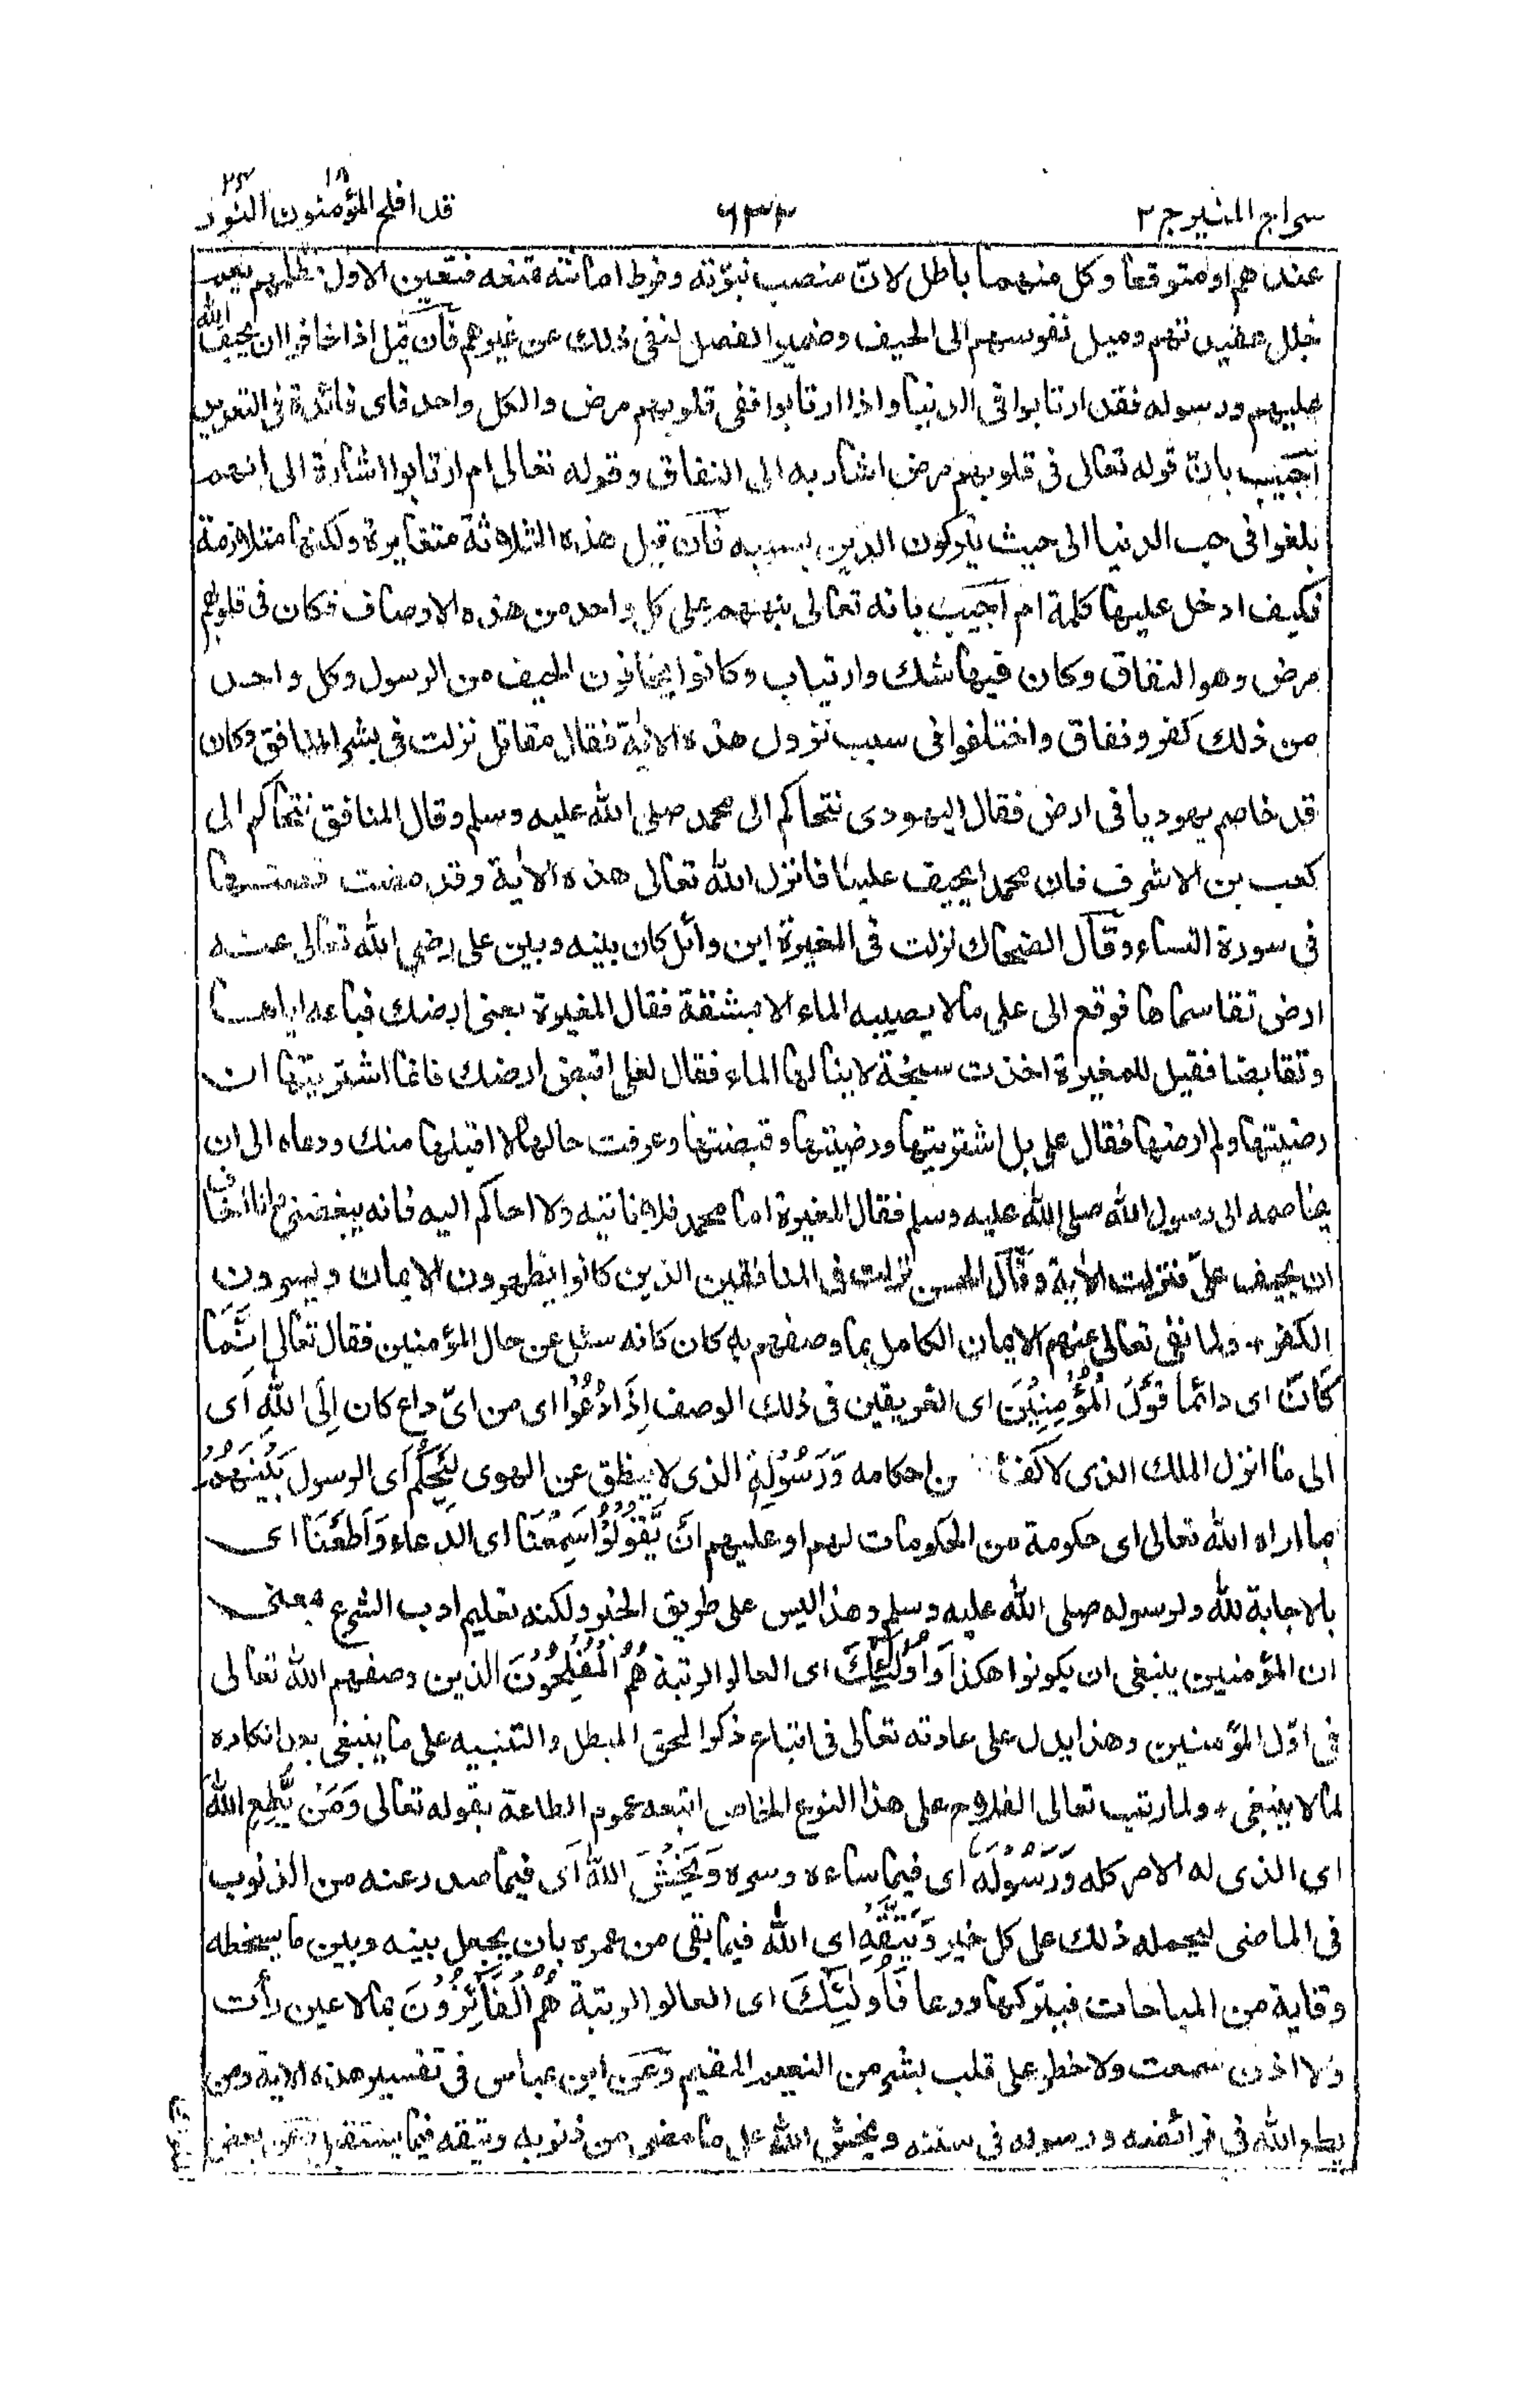 سراج المنير ج ٢
٦٣٢
قد افلح المؤمنون ١٨ النور ٢٤
عندهم او متوقعا وكل منهما باطل لانّ منصب نبوّته وفرط امانته تمنعه فتعين الاول
خلل عقيدتهم وميل نفوسهم الى الحيف وضمير الفصل لنفى ذلك عن غيرهم فان قيل اذا خافوا ان يحيف الله
عليهم ورسوله فقد ارتابوا فى الدنيا واذا ارتابوا ففى قلوبهم مرض والكل واحد فاى فائدة فى التعديد
اجيب بان قوله تعالى فى قلوبهم مرض اشار به الى النفاق وقوله تعالى ام ارتابوا اشارة الى انهم
بلغوا فى حب الدنيا الى حيث يتركون الدين بسببه فان قيل هذه الثلاثة متغايرة ولكنها متلازمة
فكيف ادخل عليها كلمة ام اجيب بانه تعالى ينبههم على كل واحد من هذه الاوصاف فكان فى قلوبهم
مرض وهو النفاق وكان فيها شك وارتياب وكانوا يخافون الحيف من الرسول وكل واحد
من ذلك كفر ونفاق واختلفوا فى سبب نزول هذه الاية فقال مقاتل نزلت فى بشر المنافق وكان
قد خاصم يهوديا فى ارض فقال اليهودى نتحاكم الى محمد صلى الله عليه وسلم وقال المنافق نتحاكم الى
كعب بن الاشرف فان محمدا يحيف علينا فانزل الله تعالى هذه الاية وقد مضت قصتها
فى سورة النساء وقال الضحاك نزلت فى المغيرة ابن وائل كان بينه وبين على رضى الله تعالى عنه
ارض تقاسماها فوقع الى على ما لا يصيبه الماء الا بمشقة فقال المغيرة بعنى ارضك فباعه اياها
وتقابضا فقيل للمغيرة اخذت سبخة لا ينالها الماء فقال لعلى اقبض ارضك فانما اشتريتها ان
رضيتها ولم ارضها فقال على بل اشتريتها ورضيتها وقبضتها وعرفت حالها لا اقبلها منك ودعاه الى ان
يخاصمه الى رسول الله صلى الله عليه وسلم فقال المغيرة اما محمد فلا اتيه ولا احاكم اليه فانه يبغضنى وانا اخاف
ان يحيف علىّ فنزلت الاية وقال الحسن نزلت فى المنافقين الذين كانوا يظهرون الايمان ويسرون
الكفر ولما نفى تعالى عنهم الايمان الكامل بما وصفهم به كان كانه سئل عن حال المؤمنين فقال تعالى اِنَّمَا
كَانَ اى دائما قَوْلَ الْمُؤْمِنِيْنَ اى العريقين فى ذلك الوصف اِذَا دُعُوْا اى من اىّ داع كان اِلَى اللهِ اى
الى ما انزل الملك الذى لا كفؤ من احكامه وَرَسُوْلِهٖ الذى لا ينطق عن الهوى لِيَحْكُمَ اى الرسول بَيْنَهُمْ
بما اراه الله تعالى اى حكومة من الحكومات لهم او عليهم اَنْ يَّقُوْلُوْا سَمِعْنَا اى الدعاء وَاَطَعْنَا اى
بالاجابة لله ولرسوله صلى الله عليه وسلم وهذا ليس على طريق الخبر ولكنه تعليم ادب الشرع بمعنى
ان المؤمنين ينبغى ان يكونوا هكذا وَاُولٰٓئِكَ اى العالو الرتبة هُمُ الْمُفْلِحُوْنَ الذين وصفهم الله تعالى
فى اوّل المؤمنين وهذا يدل على عادته تعالى فى اتباع ذكر المحق المبطل والتنبيه على ما ينبغى بعد انكاره
لما لا ينبغى ولما رتب تعالى الفلاح على هذا النوع الخاص اتبعه عموم الطاعة بقوله تعالى وَمَنْ يُّطِعِ اللهَ
اى الذى له الامر كله وَرَسُوْلَهٗ اى فيما ساءه وسره وَيَخْشَ اللهَ اى فيما صدر عنه من الذنوب
فى الماضى ليحمله ذلك على كل خير وَيَتَّقْهِ اى الله فيما بقى من عمره بان يجعل بينه وبين ما يسخطه
وقاية من المباحات فيتركها ورعا فَاُولٰٓئِكَ اى العالو الرتبة هُمُ الْفَآئِزُوْنَ بما لا عين رأت
ولا اذن سمعت ولا خطر على قلب بشر من النعيم المقيم وعن ابن عباس فى تفسير هذه الاية ومن
يطع الله فى فرائضه ورسوله فى سننه ويخش الله على ما مضى من ذنوبه ويتقه فيما يستقبل وعن بعض